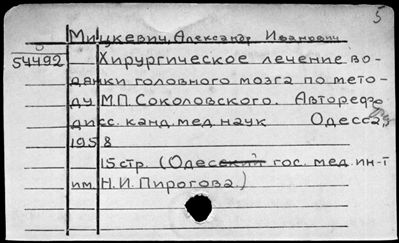 5
Мицкевич, Александр Иванович
54492 Хирургическое лечение во-
дянки головного мозга по мето-
ду М.П. Соколовского. Автореф.
дисс. канд. мед. наук Одесса,
1958
15 стр. (Одесский гос. мед. ин-т
им. Н.И. Пирогова.)